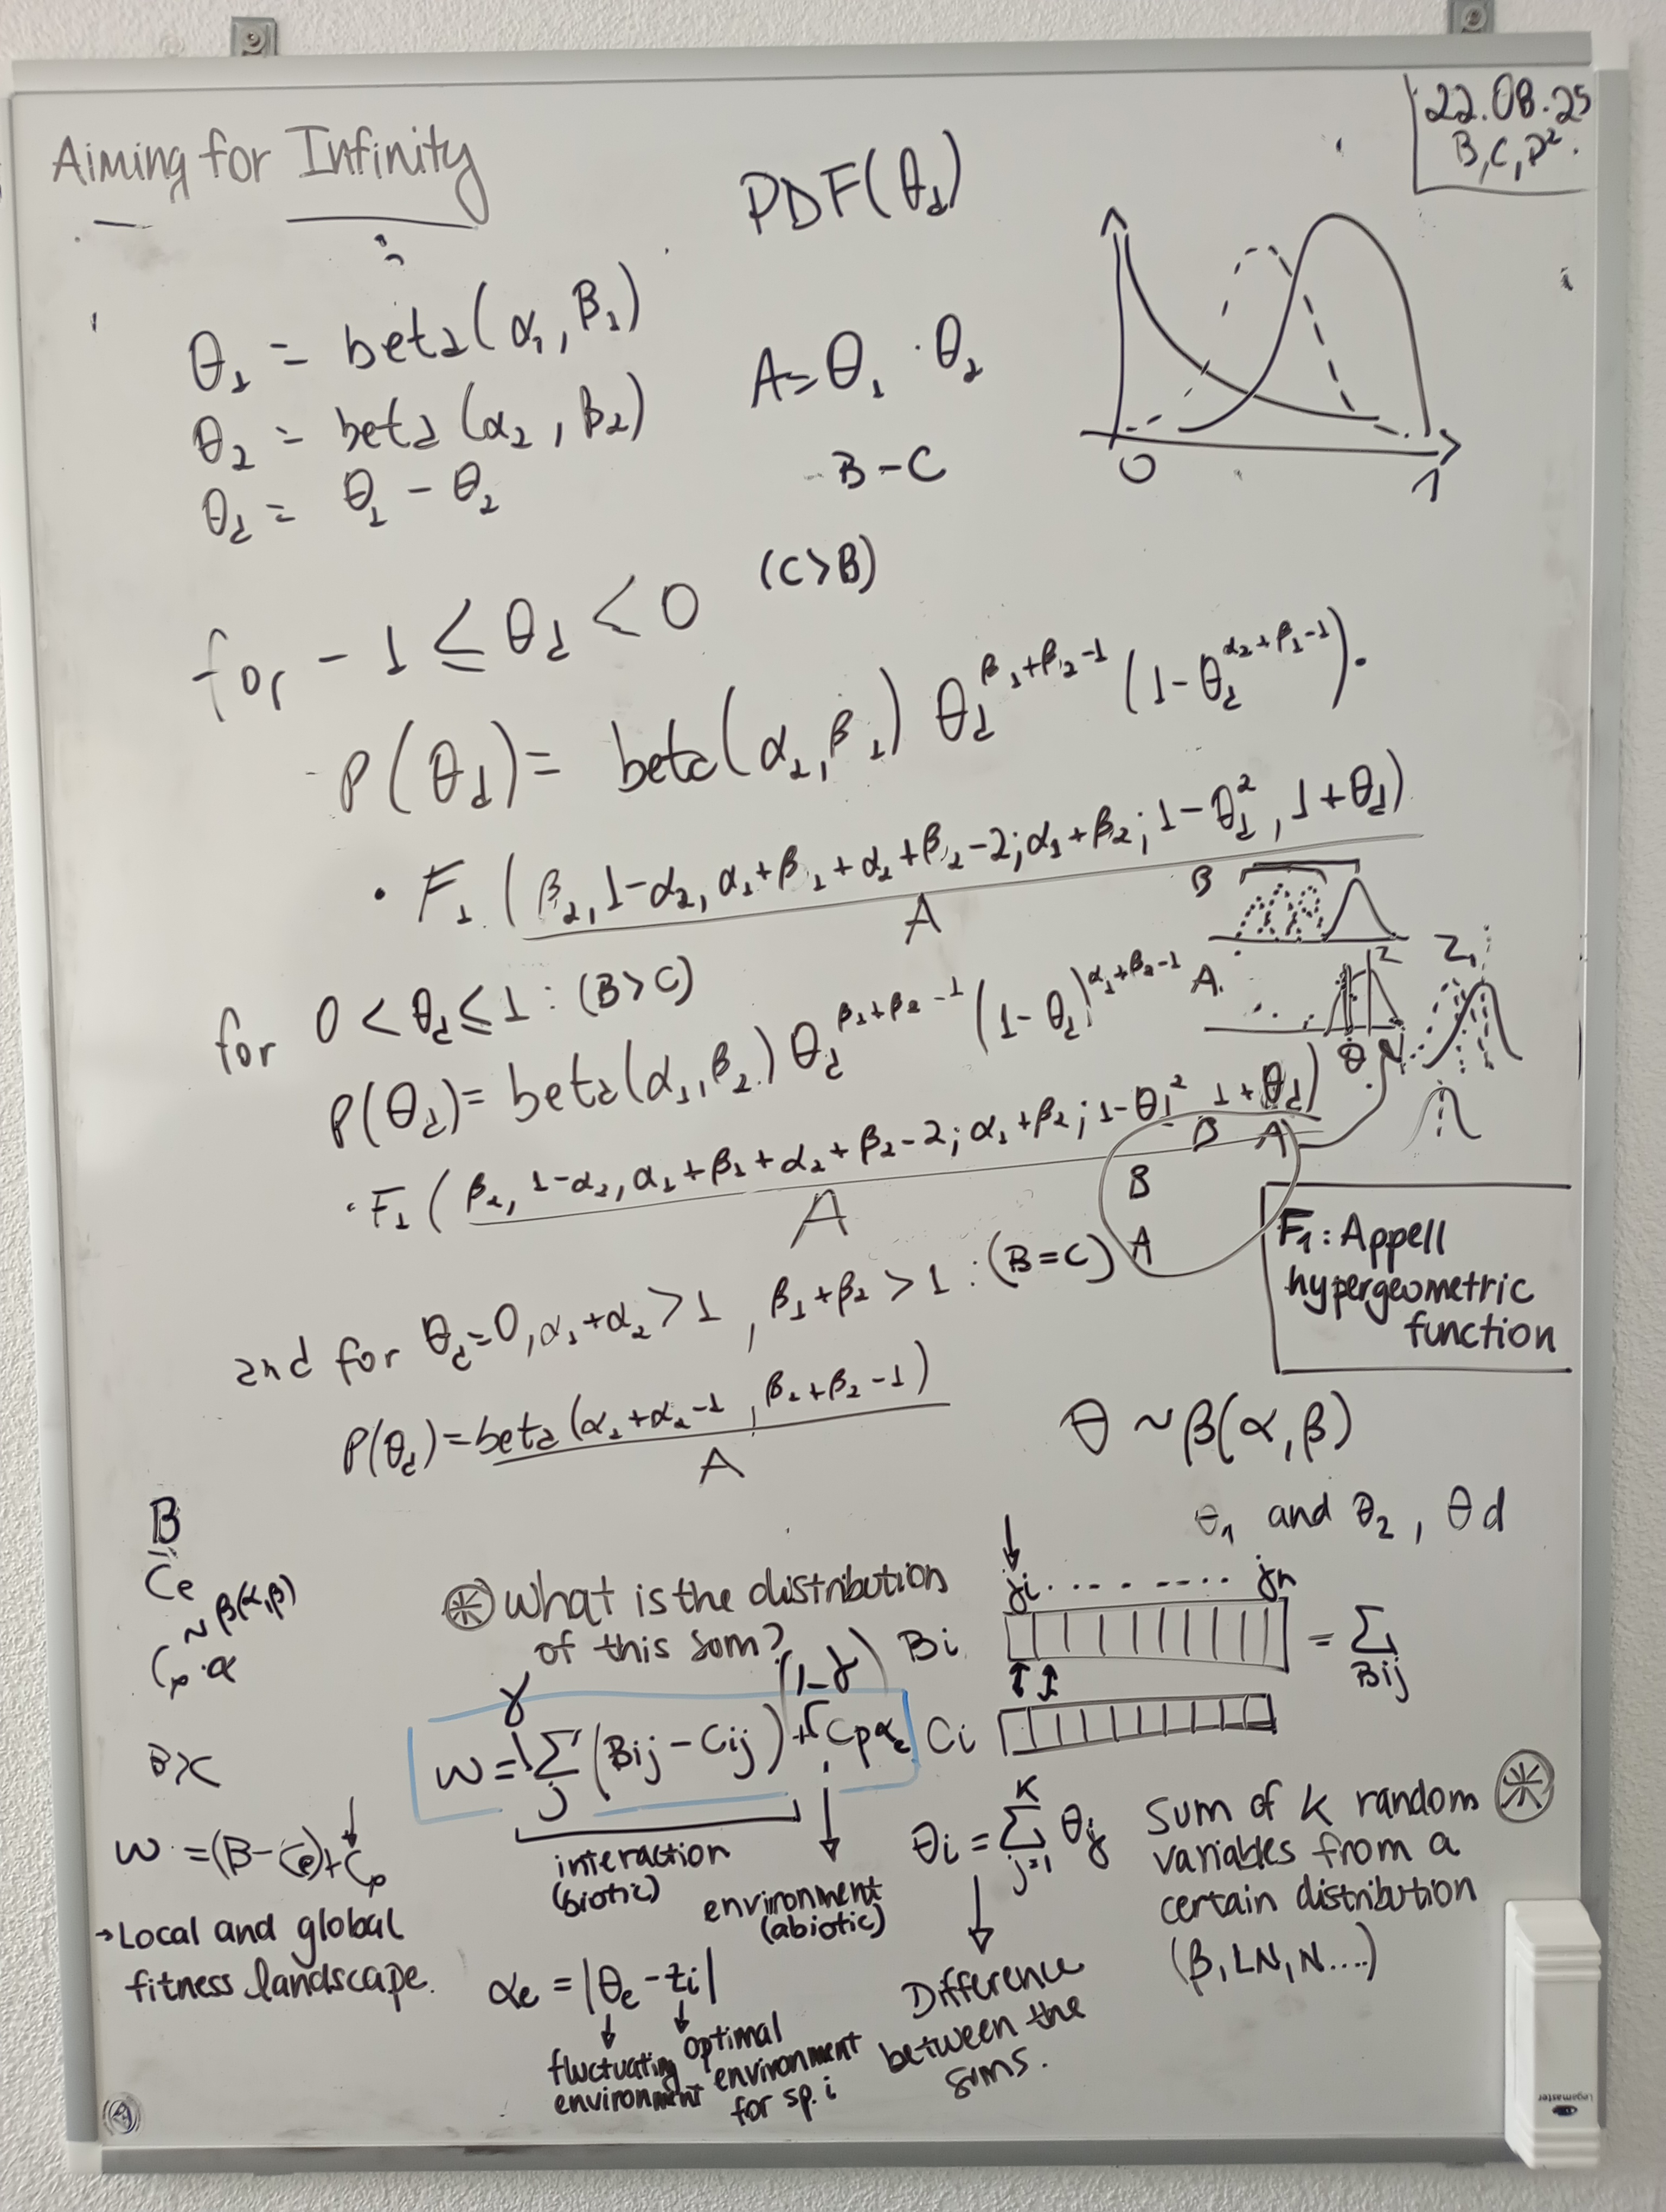 22.08.25
B, C, D².
Aiming for Infinity
PDF(θd)
θ1 = beta(α1, β1)
θ2 = beta(α2, β2)
θd = θ1 - θ2
A = θ1 · θ2
B - C
0 1
for -1 ≤ θd < 0 (C>B)
P(θd) = beta(α2, β1) θd^β1+β2-1 (1-θd^α2+β1-1).
· F1 (β2, 1-α2, α1+β1+α2+β2-2; α1+β2; 1-θd², 1+θd)
A
B
A.
Z
θ
Z1
for 0 < θd ≤ 1 : (B>C)
P(θd) = beta(α1, β2) θd^β1+β2-1 (1-θd)^α1+β2-1
· F1 (β2, 1-α2, α1+β1+α2+β2-2; α1+β2; 1-θd² 1+θd)
A
B A
B
A
F1: Appell
hypergeometric
function
and for θd=0, α1+α2 > 1, β1+β2 > 1 : (B=C)
P(θd) = beta(α1+α2-1, β1+β2-1)
A
θ ~ β(α, β)
θ1 and θ2, θd
B
Ce
~ β(α,β)
Cp·α
w = (B-Ce)+Cp
→ Local and global
fitness landscape.
⊛ What is the distribution
of this sum?
γ (1-γ)
w = Σj (Bij - Cij) + Cpαe
interaction
(biotic)
environment
(abiotic)
αe = |θe - zi|
fluctuating
environment
optimal
environment
for sp. i
ji ........ jn
Bi = Σ Bij
Ci
θi = Σ K j=1 θj
Difference
between the
sums.
Sum of K random ⊛
variables from a
certain distribution
(β, LN, N....)
Legamaster